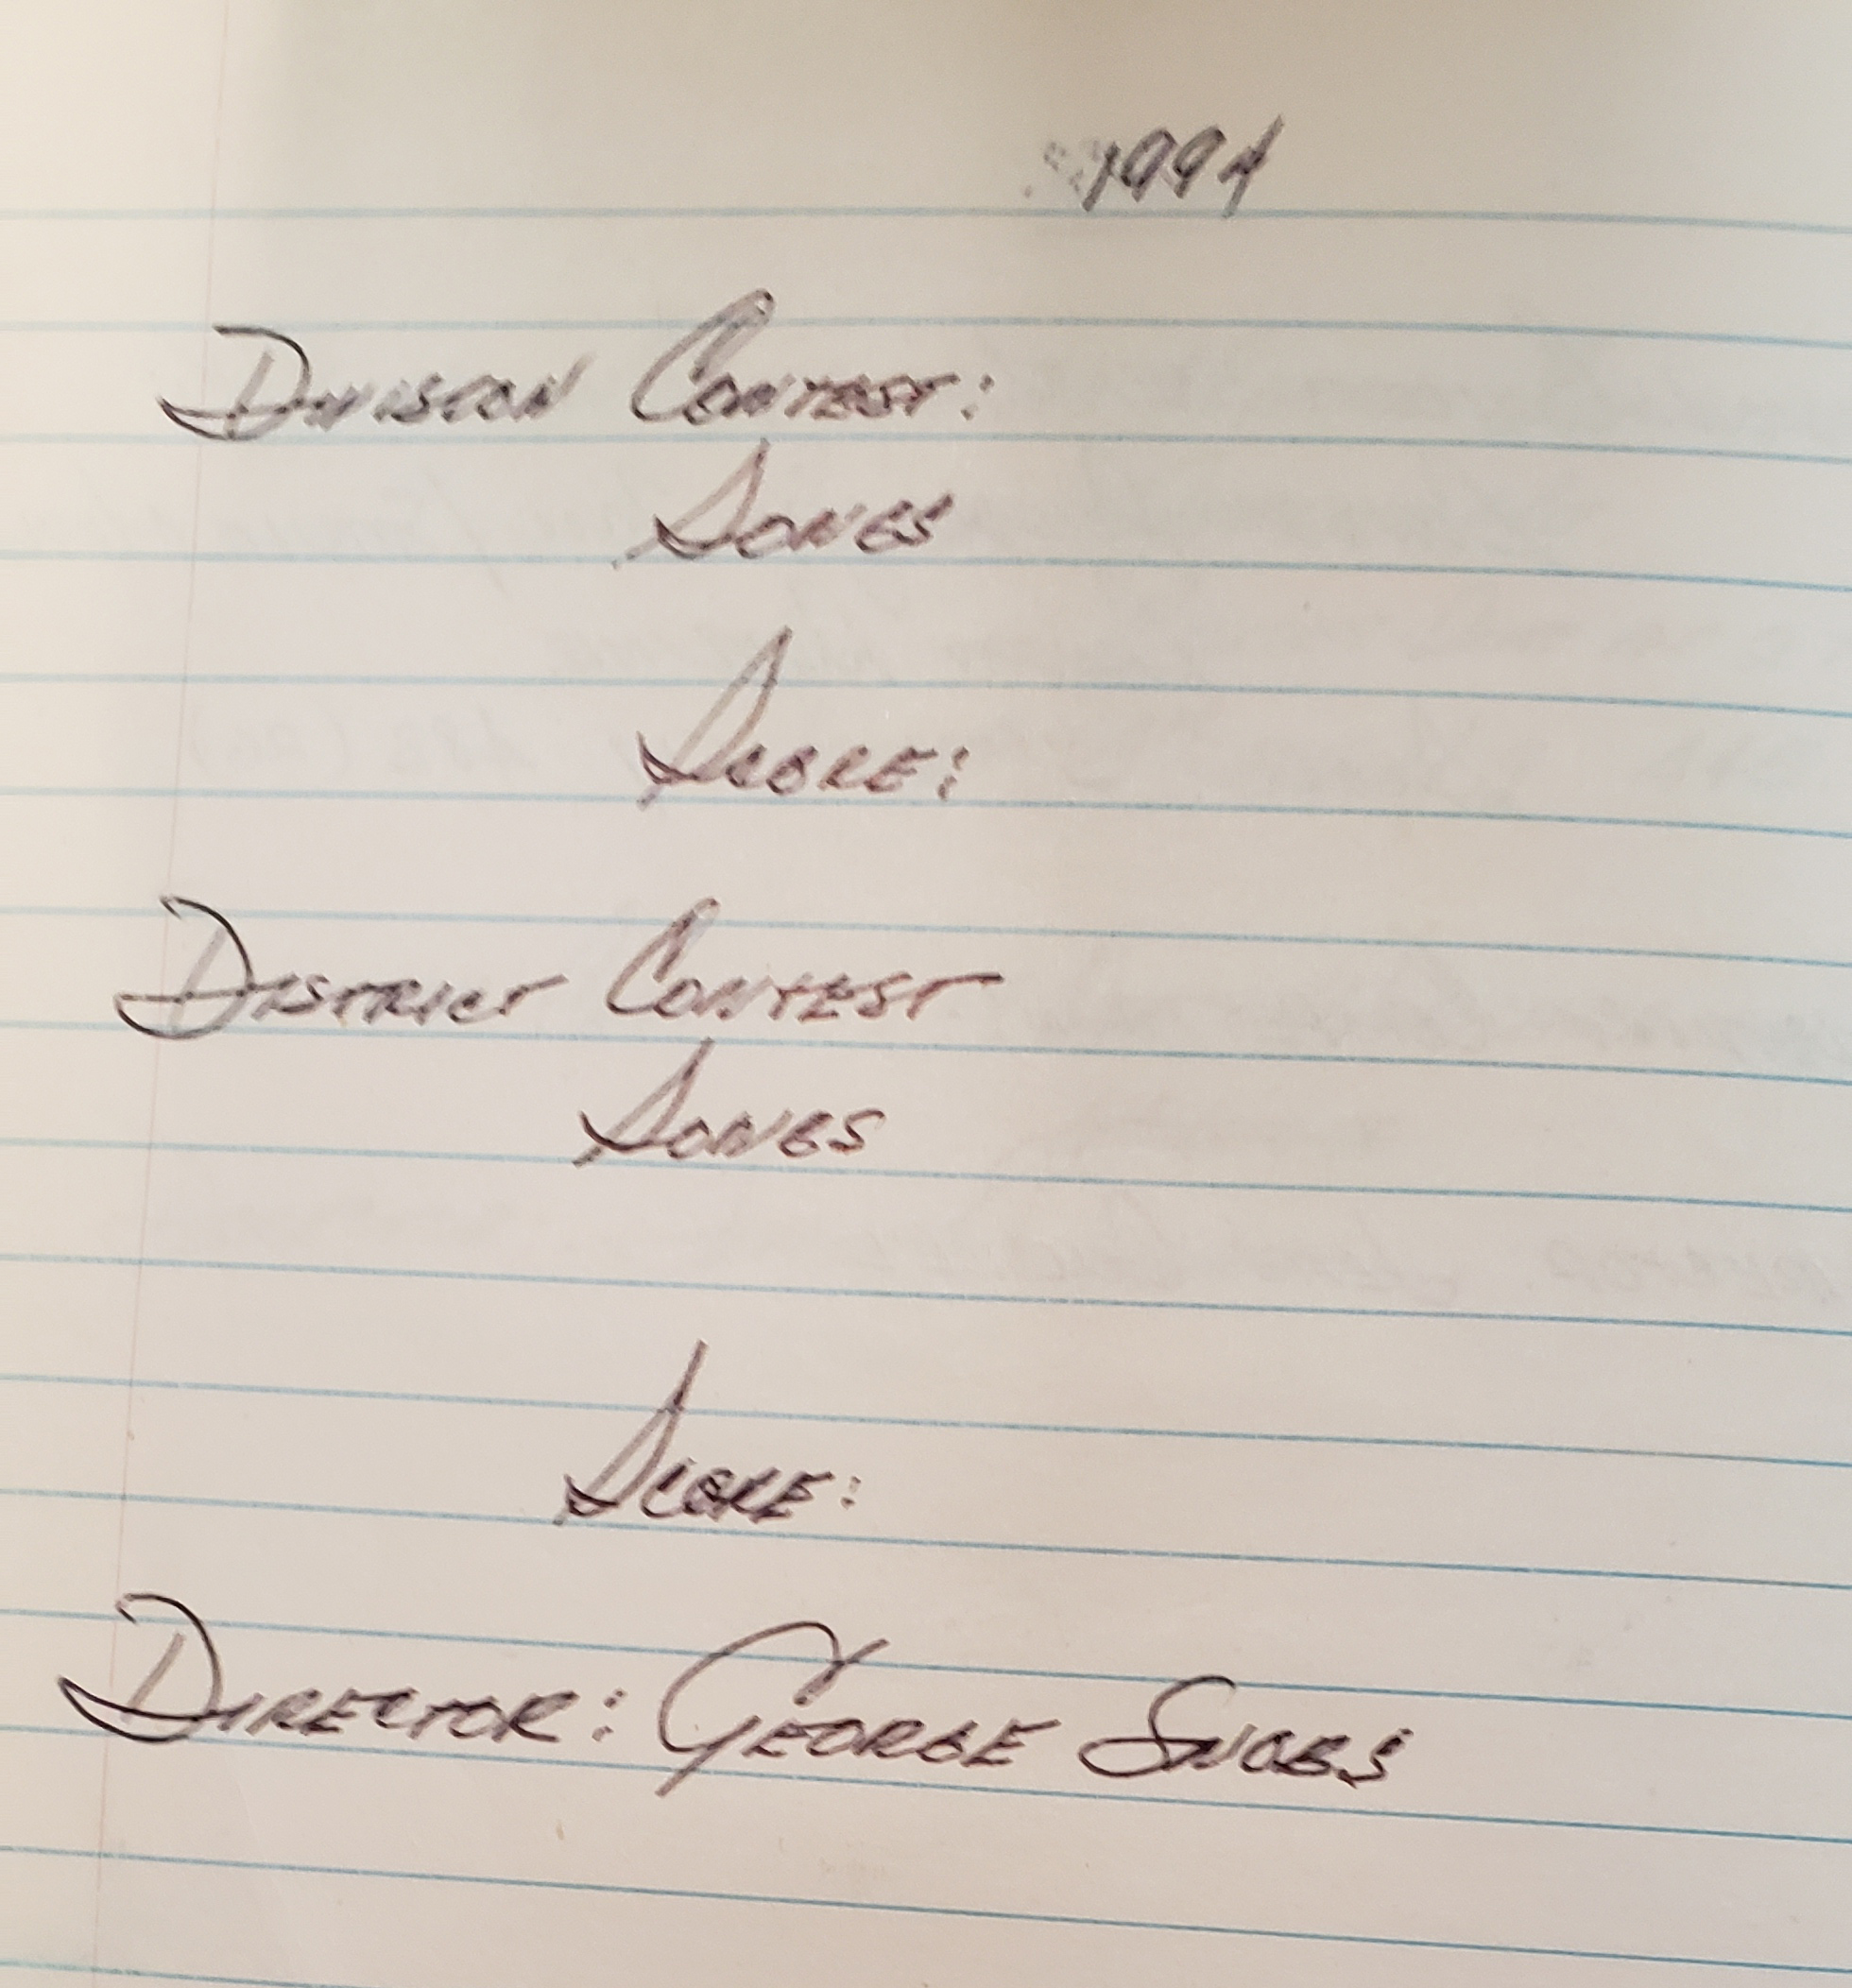 1994
Division Contest:
Songs
Score:
District Contest
Songs
Score:
Director: George Snobs